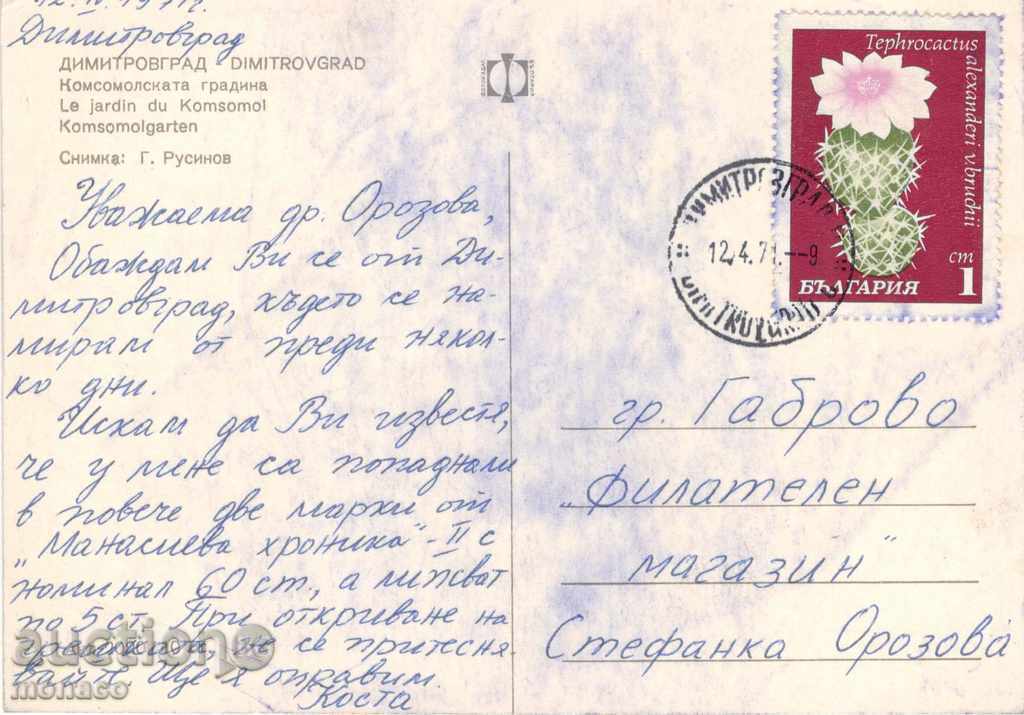 12. IV. 1971 г.
Димитровград
ДИМИТРОВГРАД DIMITROVGRAD
Комсомолската градина
Le jardin du Komsomol
Komsomolgarten
Снимка: Г. Русинов
Уважаема др. Орозова,
Обаждам Ви се от Ди-
митровград, където се на-
мирам от преди някол-
ко дни.
Искам да Ви известя,
че у мене са попаднали
в повече две марки от
"Манасиева хроника" - II с
номинал 60 ст, а липсват
по 5 ст. При откриване на
грешката, не се притесня-
вайте. Ще я оправим.
Коста
Tephrocactus
alexanderi v. bruchii
ст
1
БЪЛГАРИЯ
ДИМИТРОВГРАД
12.4.71.--9
DIMITROVGRAD
гр. Габрово
"Филателен
магазин"
Стефанка Орозова
auction
monaco